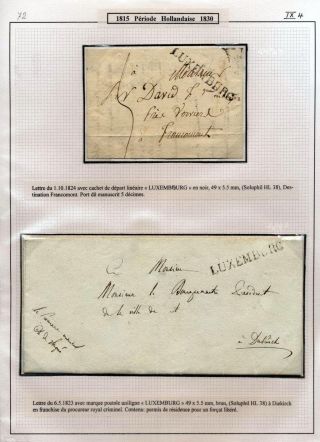 72
1815 Période Hollandaise 1830
IX 4
LUXEMBURG
à
Monsieur
David
près Verviers
Francomont
Lettre du 1.10.1824 avec cachet de départ linéaire « LUXEMBURG » en noir, 49 x 5.5 mm, (Soluphil HL 38), Des-
tination Francomont. Port dû manuscrit 5 décimes.
LUXEMBURG
Monsieur
Monsieur le Bourguemestre Président
de la ville de et
à Diekirch
Lettre du 6.5.1823 avec marque postale uniligne « LUXEMBURG » 49 x 5.5 mm, brun, (Soluphil HL 38) à Diekirch
en franchise du procureur royal criminel. Contenu: permis de résidence pour un forçat libéré.